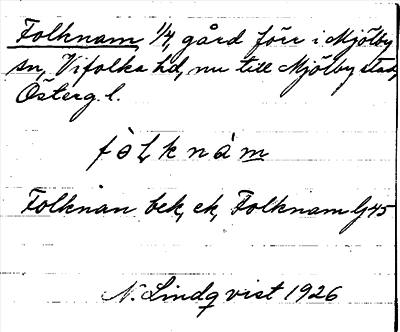 Folknam 1/4, gård förr i Mjölby
sn, Vifolka hd, nu till Mjölby stad,
Österg. l.
fòLknàm
Folknan bek, ek, Folknam Gj 45
N. Lindqvist 1926